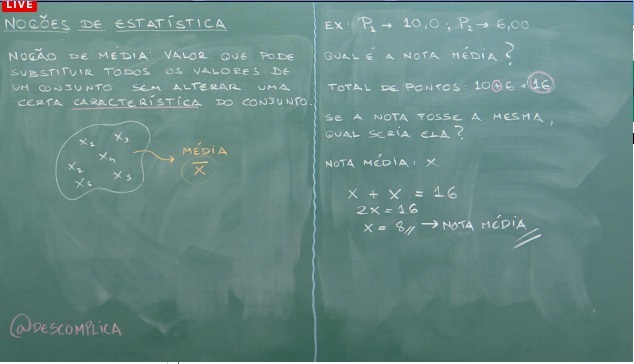 LIVE
NOÇÕES DE ESTATÍSTICA
NOÇÃO DE MÉDIA: VALOR QUE PODE
SUBSTITUIR TODOS OS VALORES DE
UM CONJUNTO SEM ALTERAR UMA
CERTA CARACTERÍSTICA DO CONJUNTO.
X₁ X₃
X₄
X₂ X₅
MÉDIA
X̅
@DESCOMPLICA
EX: P₁ → 10,0 ; P₂ → 6,00
QUAL É A NOTA MÉDIA?
TOTAL DE PONTOS: 10+6 = 16
SE A NOTA FOSSE A MESMA,
QUAL SERIA ELA?
NOTA MÉDIA: X
X + X = 16
2X = 16
X = 8// → NOTA MÉDIA